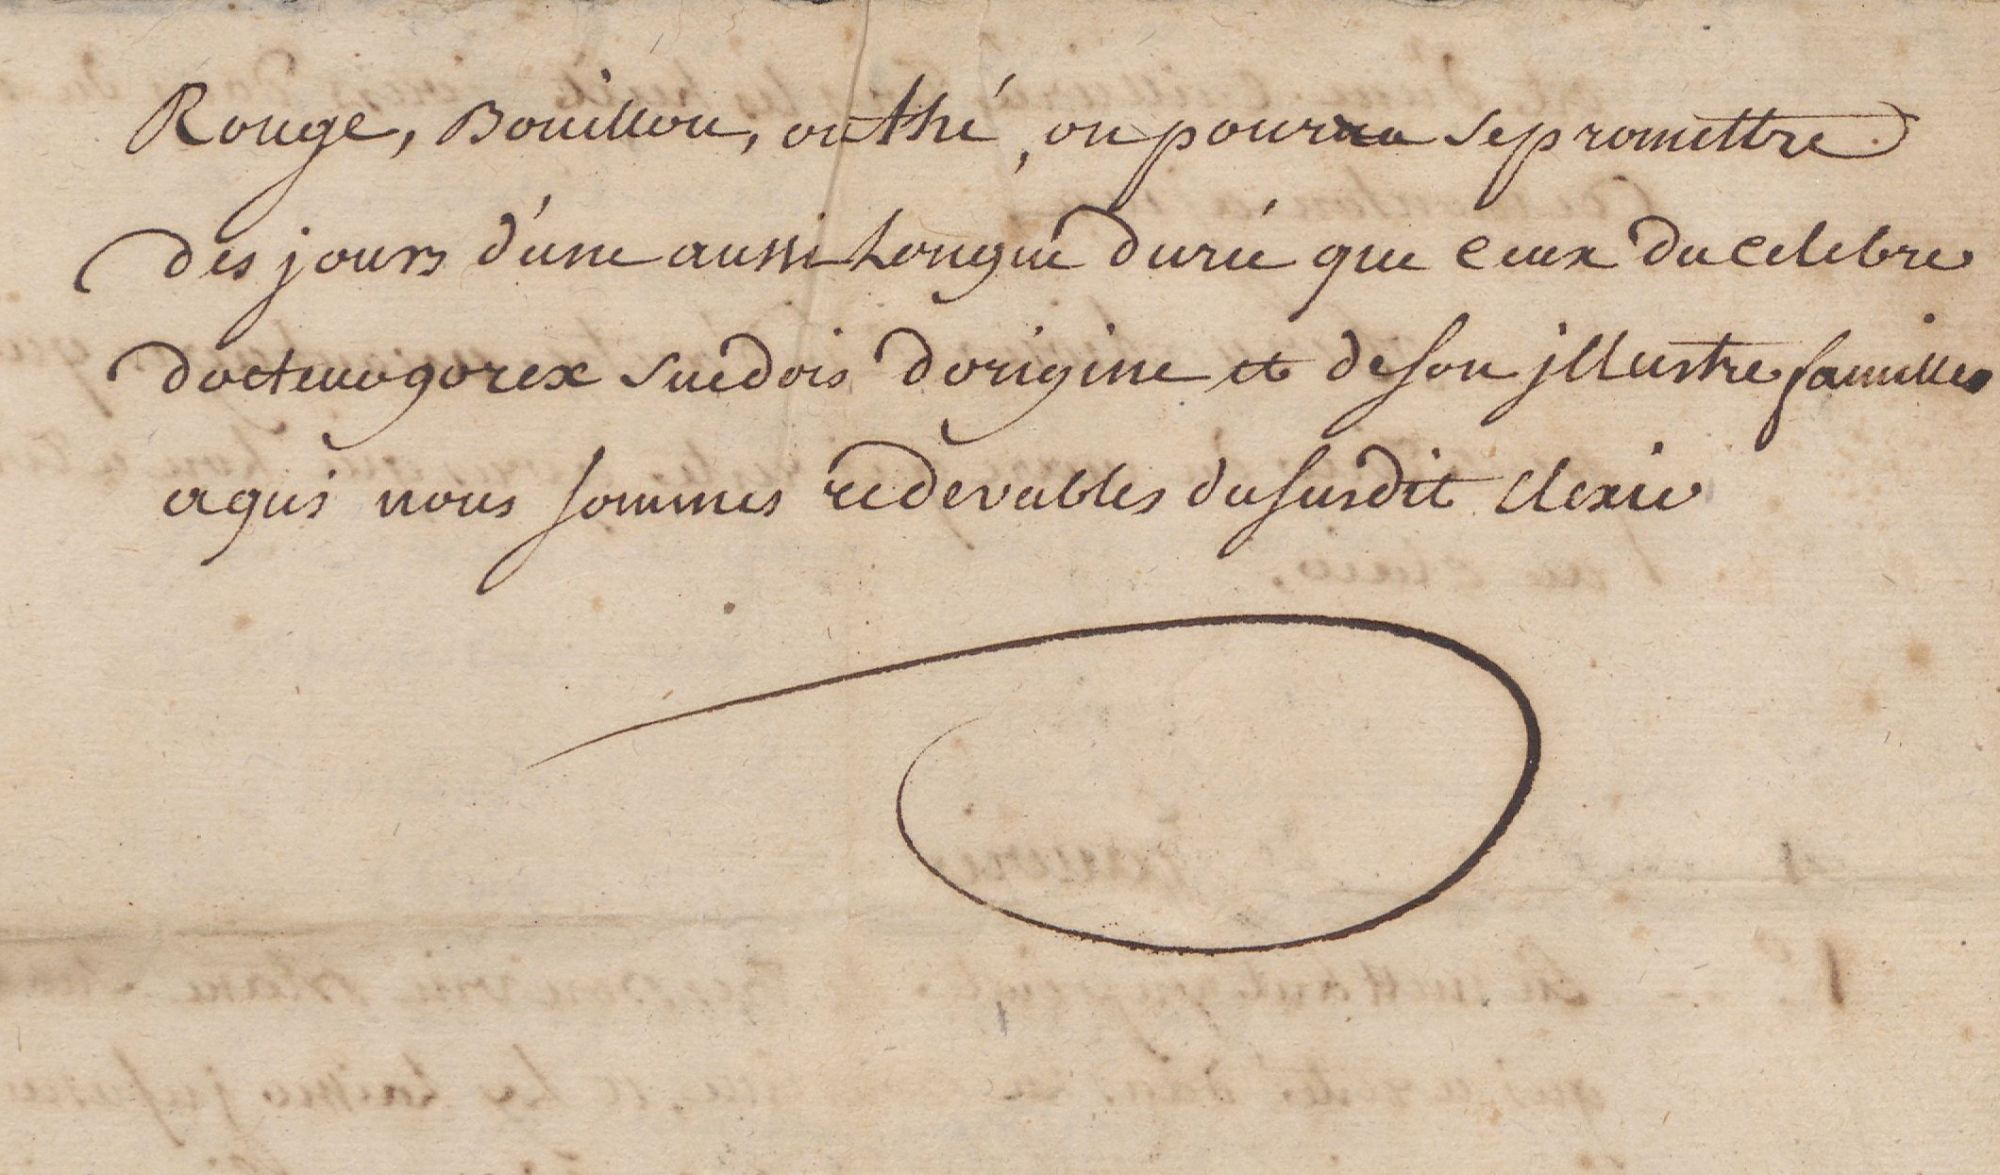 Rouge, Bouillon, ou thé, on pourra se promettre
des jours d'une aussi Longue durée que ceux du celebre
docteur gorex suedois d'origine et de son jllustre famille
a qui nous sommes redevables du susdit elexir